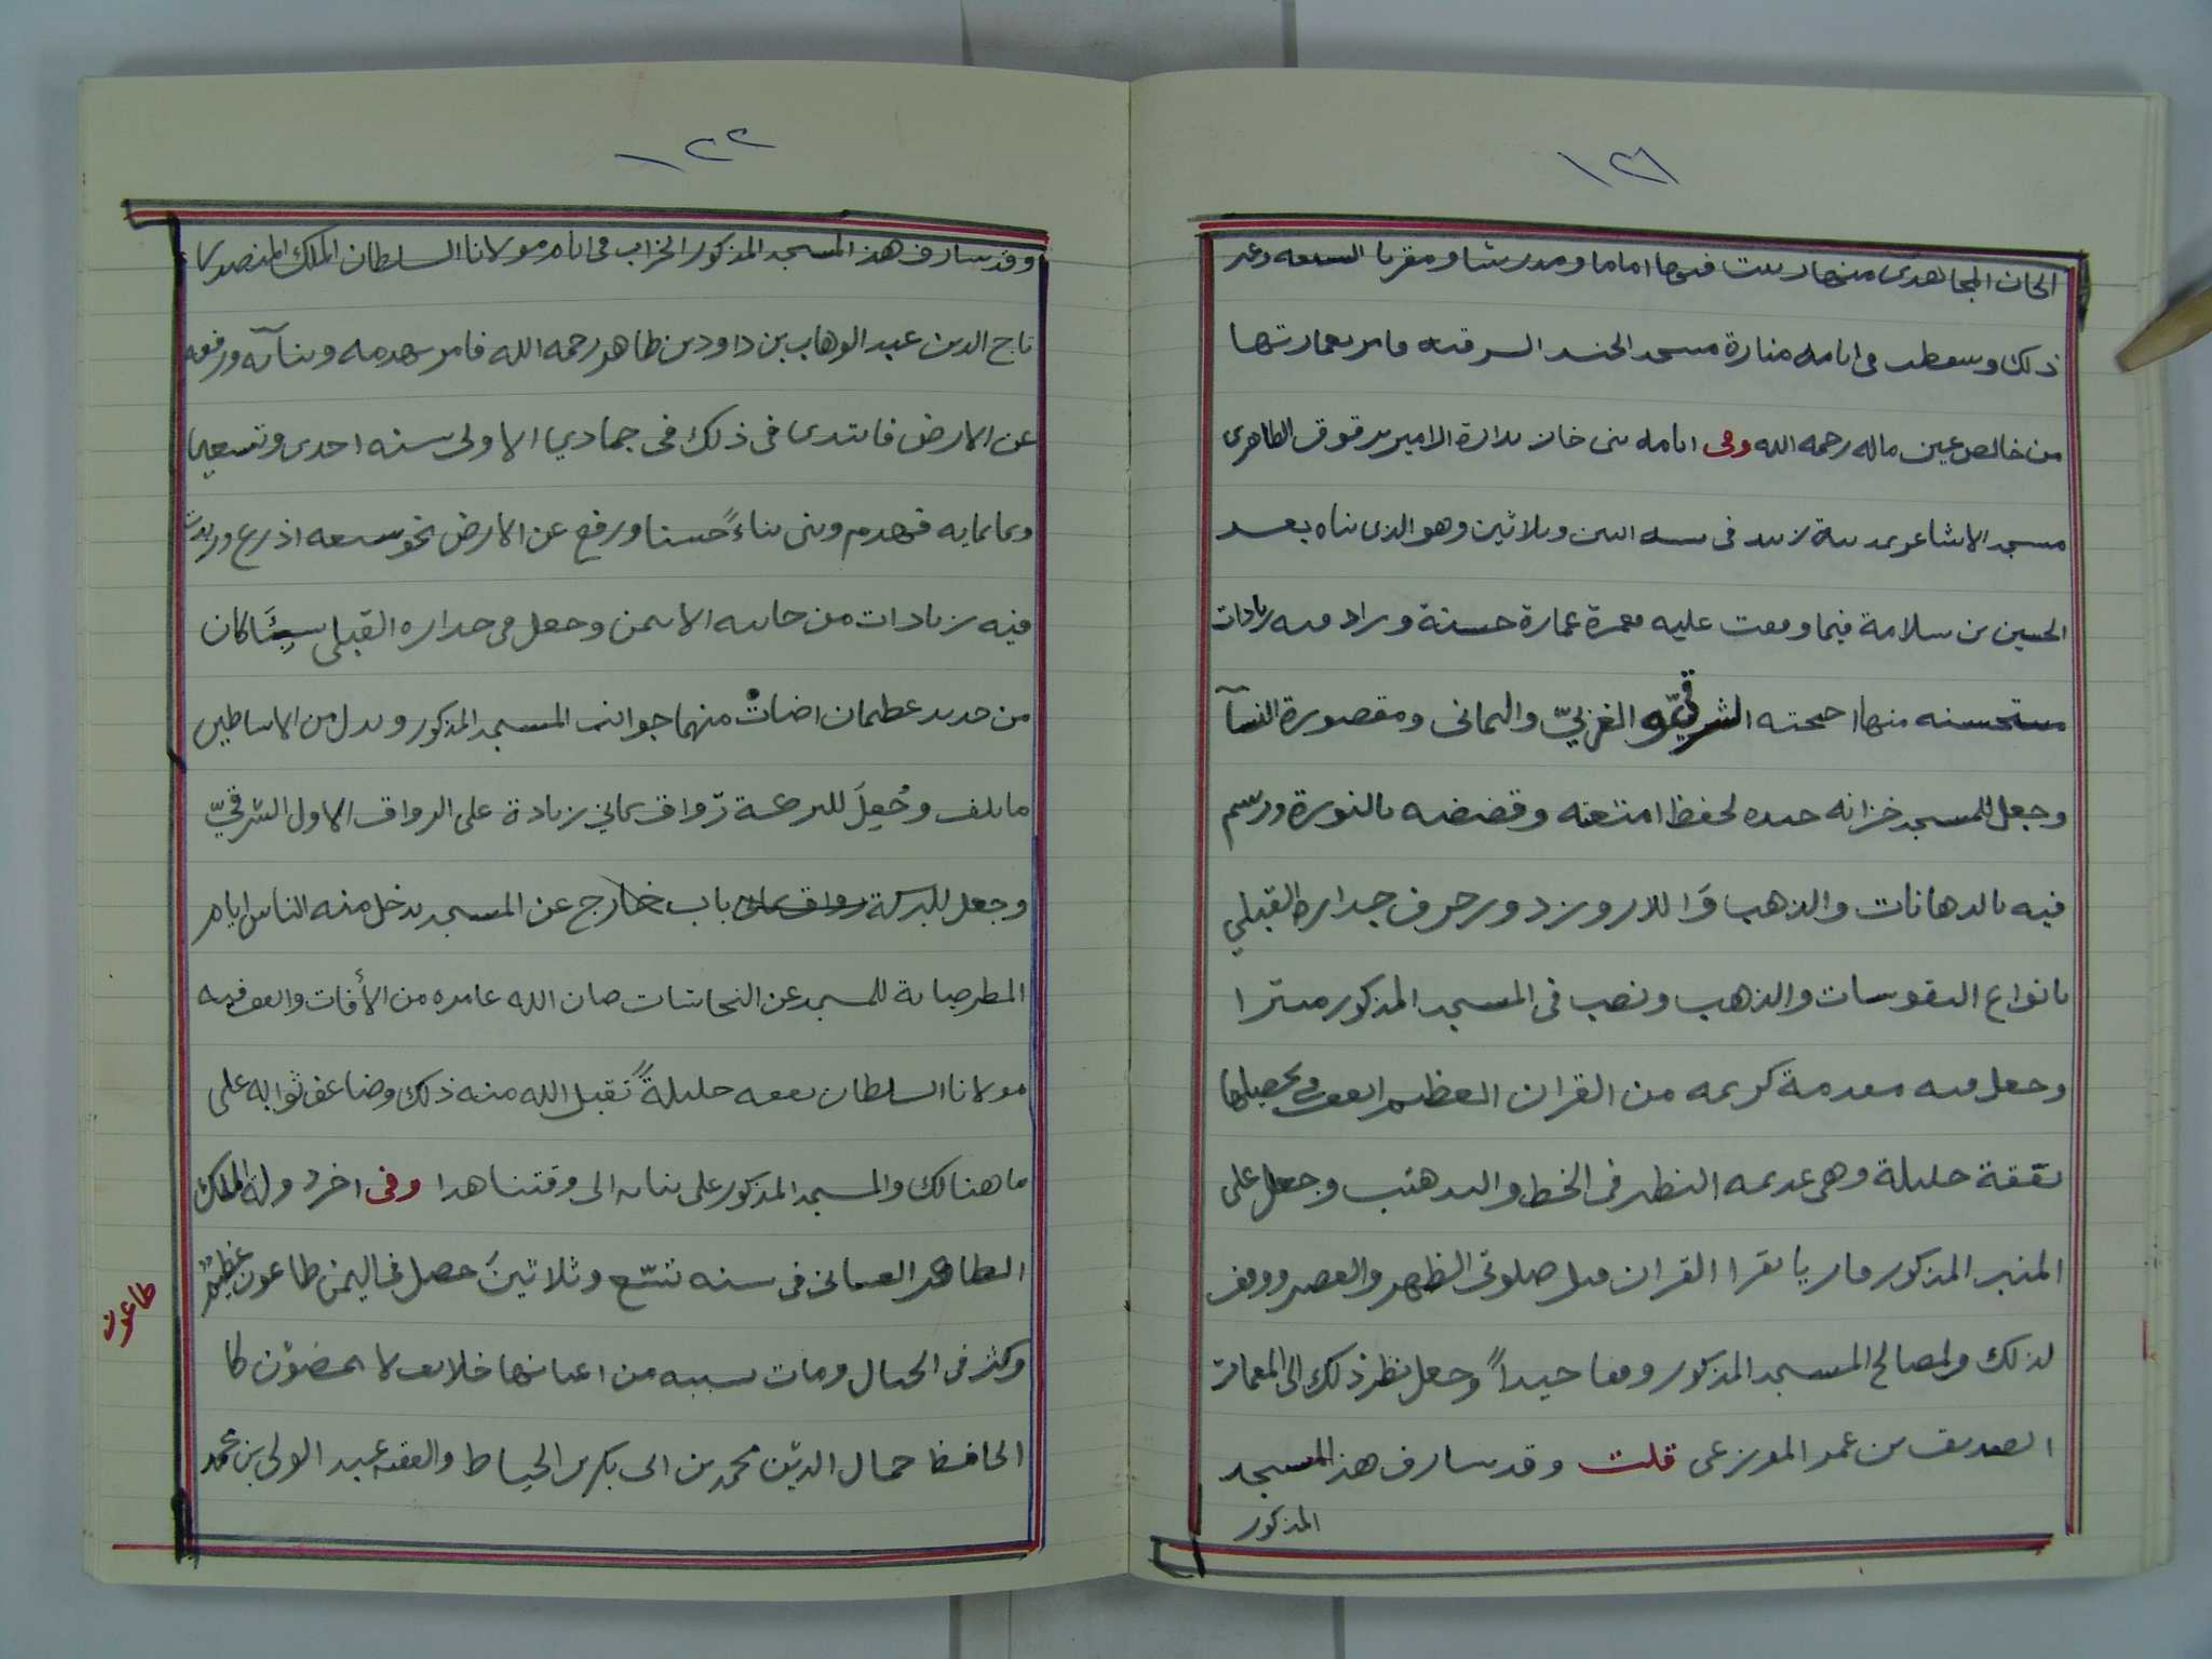 ١٢١
الخان المجاهدى منها رست فيها اماما ومدرسا ومقريا السبعه وغير
ذلك وسقطت فى ايامه منارة مسجد الجند السرقيه فامر بعمارتها
من خالص عين ماله رحمه الله وفى ايامه بنى خازنداره الامير برقوق الظاهرى
مسجد الاشاعر بمدينة زبيد فى سنه اثنين وثلاثين وهو الذى بناه بعد
الحسين بن سلامة فيما وقفت عليه فعمره عمارة حسنة وزاد فيه زيادات
مستحسنه منها اجنحته الشرقي والغربيّ واليمانى ومقصورة النسآ
وجعل للمسجد خزانه جيده لحفظ امتعته وقضضه بالنورة ورسم
فيه بالدهانات والذهب وَاللازورد وزخرف جداره القبلي
بانواع النقوسات والذهب ونصب فى المسجد المذكور منبرا
وجعل فيه مقدمة كريمه من القران العظيم انفق في تحصيلها
نفقة جليلة وهى عديمه النظير فى الخط والتذهيب وجعل على
المنبر المذكور قاريا يقرا القران قبل صلوتى الظهر والعصر ووقف
لذلك ولمصالح المسجد المذكور وقفا جيداً وجعل نظر ذلك الى
الصديق بن عمر الموزعى قلت وقد سارف هذ المسجد
المذكور
١٢٢
وقد سارف هذ المسجد المذكور الخراب فى ايام مولانا السلطان الملك المنصور
تاج الدين عبد الوهاب بن داود بن طاهر رحمه الله فامر بهدمه وبنآيه ورفعه
عن الارض فابتدى فى ذلك فى جمادي الاولى سنه احدى وتسعين
وثمانمايه فهدم وبنى بناءً حسنا ورفع عن الارض نحو سبعه اذرع وزيدت
فيه زيادات من جانبه الايمن وجعل فى جداره القبلى شبّاكان
من حديد عظيمان اضات منهما جوانب المسجد المذكور وبدل من الاساطين
ما تلف وجُعِلَ للبركة رواق ثاني زيادة على الرواق الاول الشرقيّ
وجعل للبركة باب خارج عن المسجد يدخل منه الناس ايام
المطر صيانة للمسجد عن النجاسات صان الله عامره من الأفات وانفق فيه
مولانا السلطان نفقه جليلةً تقبل الله منه ذلك وضاعف ثوابه على
ما هنالك والمسجد المذكور على بنايه الى وقتنا هدا وفى اخر دولة الملك
الظاهر الغسانى فى سنه تسّع وثلاثينَ حصل فى اليمن طاعون عظيم
طاعون
وكثر فى الجبال ومات بسببه من اعيانها خلايق لا يحضوْن كا
الحافظ جمال الديّن محمد بن ابى بكر الخياط والفقيه عبد الولى بن محمد